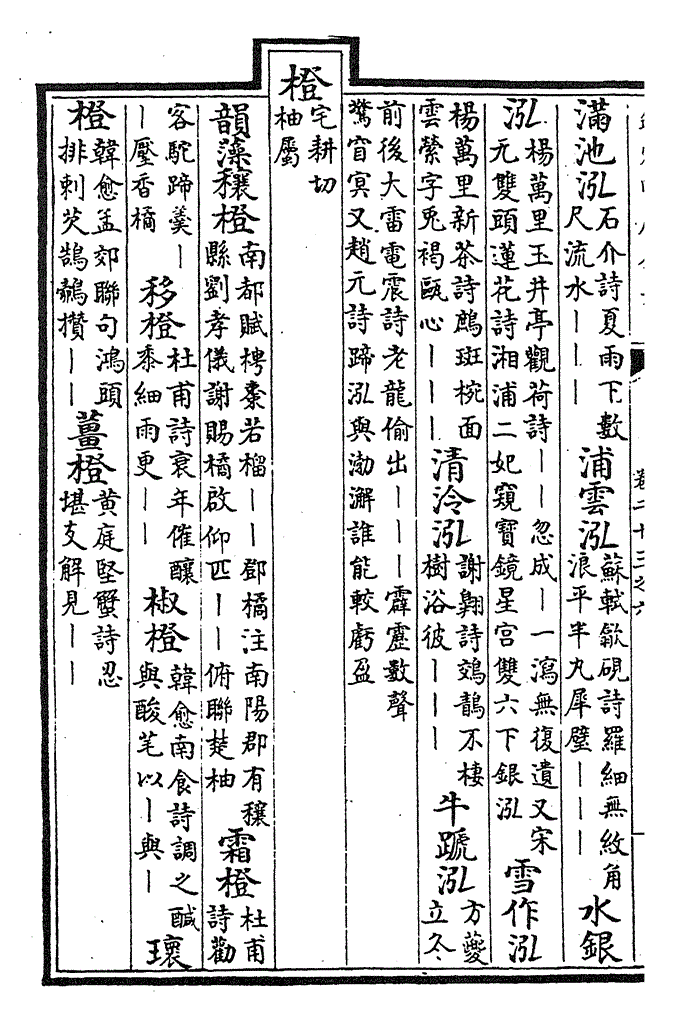 卷二十三之六
滿池泓石介詩夏雨下數尺流水｜｜｜浦雲泓蘇軾歙硯詩羅細無紋角浪平半丸犀璧｜｜｜水銀
泓楊萬里玉井亭觀荷詩｜｜忽成｜一瀉無復遺又宋元雙頭蓮花詩湘浦二妃窺寶鏡星宮雙六下銀泓雪作泓
楊萬里新茶詩鷓斑椀面雲縈字兎褐甌心｜｜｜清泠泓謝翱詩鵁鶄不棲樹浴彼｜｜｜牛蹏泓方夔立冬
前後大雷電震詩老龍偷出｜｜｜霹靂數聲驚窅冥又趙元詩蹄泓與渤澥誰能較虧盈
橙宅耕切柚屬
韻藻穰橙南都賦梬棗若榴｜｜鄧橘注南陽郡有穰縣劉孝儀謝賜橘啟仰匹｜｜俯聯楚柚霜橙杜甫詩勸
客駝蹄羹｜｜壓香橘移橙杜甫詩衰年催釀黍細雨更｜｜椒橙韓愈南食詩調之鹹與酸芼以｜與｜瓌
橙韓愈孟郊聯句鴻頭排刺芡鵠攢｜｜薑橙黄庭堅蟹詩忍堪支解見｜｜